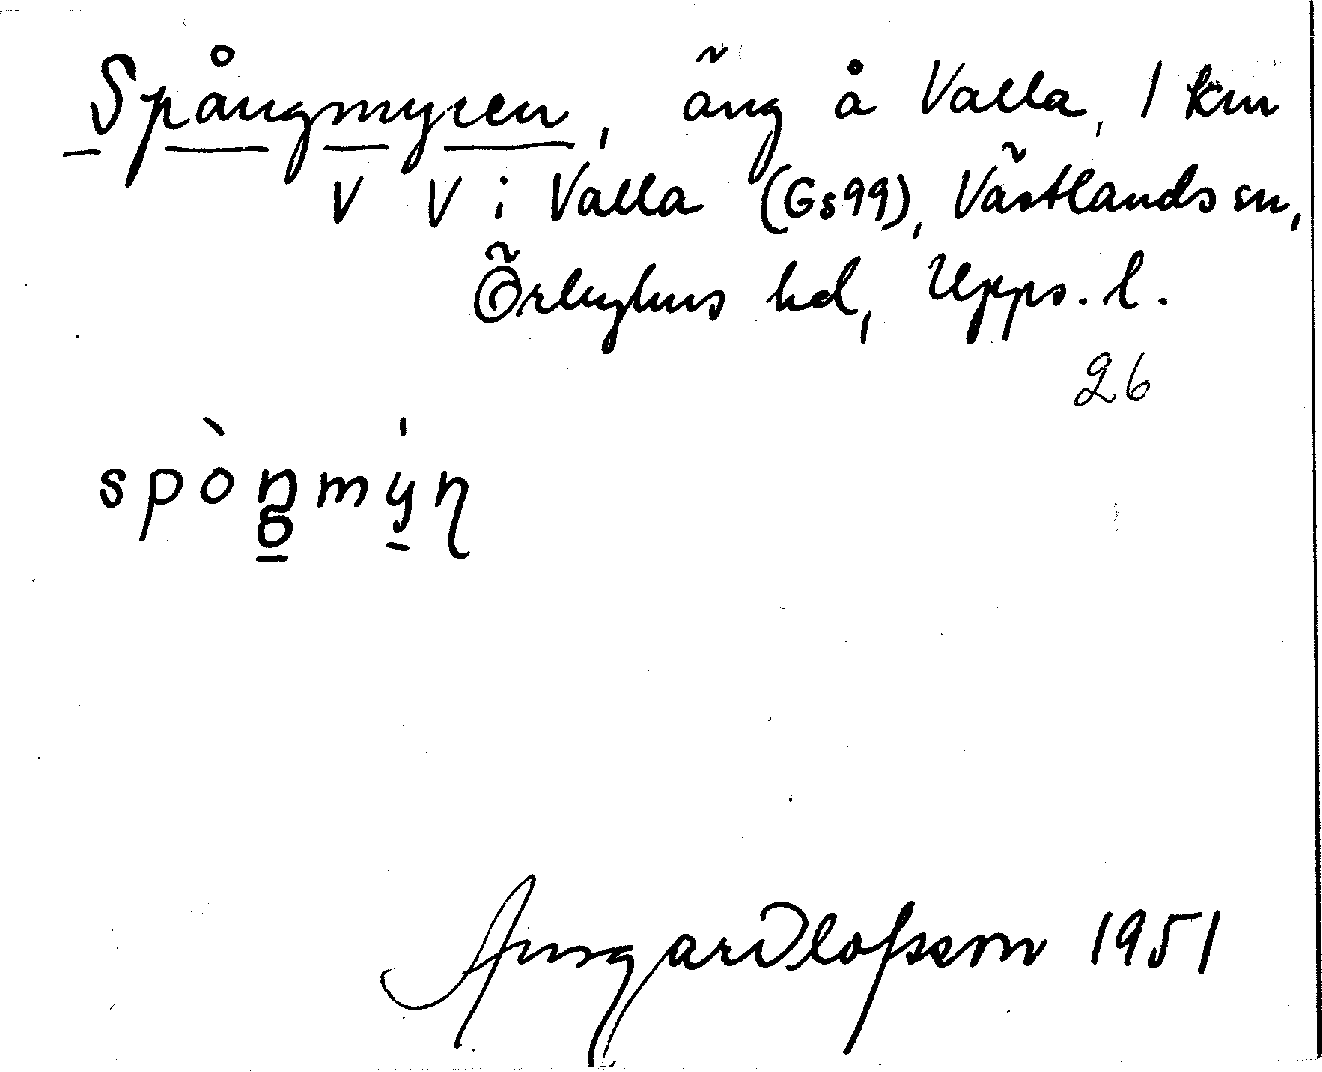 Spångmyren, äng å Valla, 1 km
V V i Valla (Gs99), Västlands sn,
Örbyhus hd, Upps. l.
26
spòŋmýɳ
Ansgar Olofsson 1951